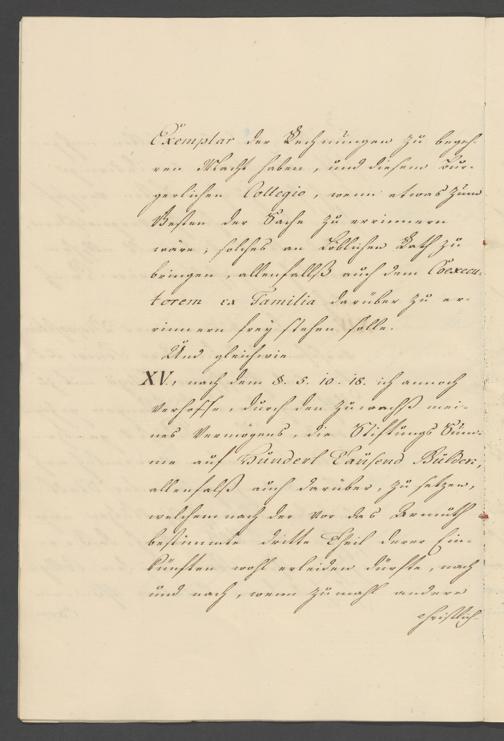 Exemplar der Rechnungen zu begeh-
ren Macht haben, und diesem Bür-
gerlichen Collegio, wenn etwas zum
Besten der Sache zu errinnern
wäre, solches an Löblichen Rath zu
bringen, allenfallß auch dem Coexecu-
torem ex Familia darüber zu er-
rinnern frey stehen solle.
Und gleichwie
XV., nach dem §. 5. 10. 18. ich annoch
verhoffe, durch den Zuwachß mei-
nes Vermögens, die Stiftungs Sum-
me auf Hundert Tausend Gulden,
allenfalß auch darüber, zu setzen,
welchemnach der vor das Armuth
bestimmte dritte Theil derer Ein-
künften wohl erleiden dürfte, nach
und nach, wenn zumahl andere
christlich